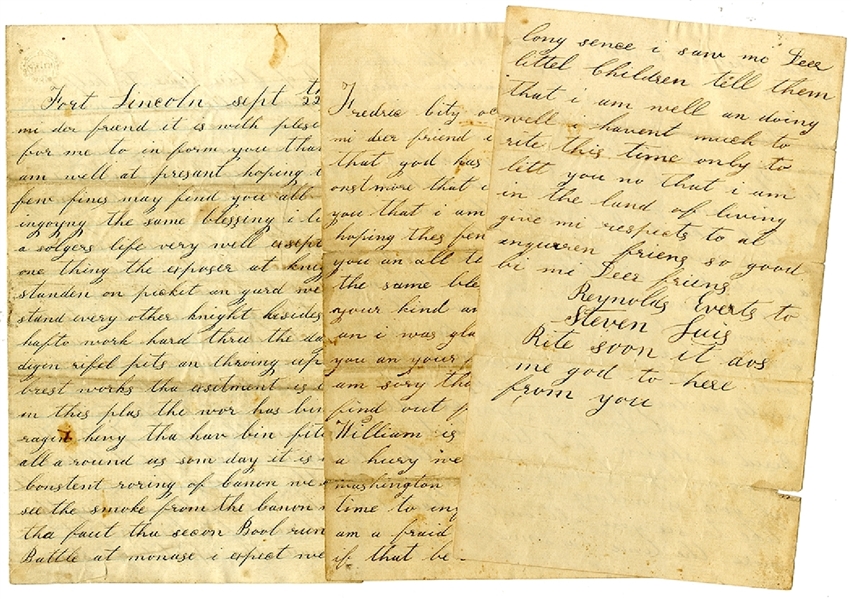 Fort Lincoln sept th 22
mi dor friend it is with plesi
for me to in form you that
am well at presant hoping
few fines may find you all
ingoyng the same blessing i li
a solgers life very well exsept
one thing the exposer at knig
standen on pecket an gard we
stand every other knight besides
hapto work hard thru the da
digen rifel pits an throing up
brest works tha exitment is
in this plas the wor has bin
ragin hevy tha hav bin fite
all a round us som day it is
bonstent roring of banon we
see the smoke from the banon
tha faut tha secon Bool run
Battle at monase i expect we
Fredric bity
mi deer friend i
that god has
onst more that i
you that i am
hoping thes few
you an all
the same ble
your kind an
an i was gla
you an your
am sory tha
find out
William is
a hury we
washington
time to in
am a fraid
if that be
long sence i saw mi Deer
littel Children tell them
that i am well an doving
well i havent much to
rite this time only to
litt you no that i am
in the land of living
give mi respects to al
inguren friens so good
bi mi Deer friens
Reynolds Everts to
Steven Suis
Rite soon it dos
me god to here
from you